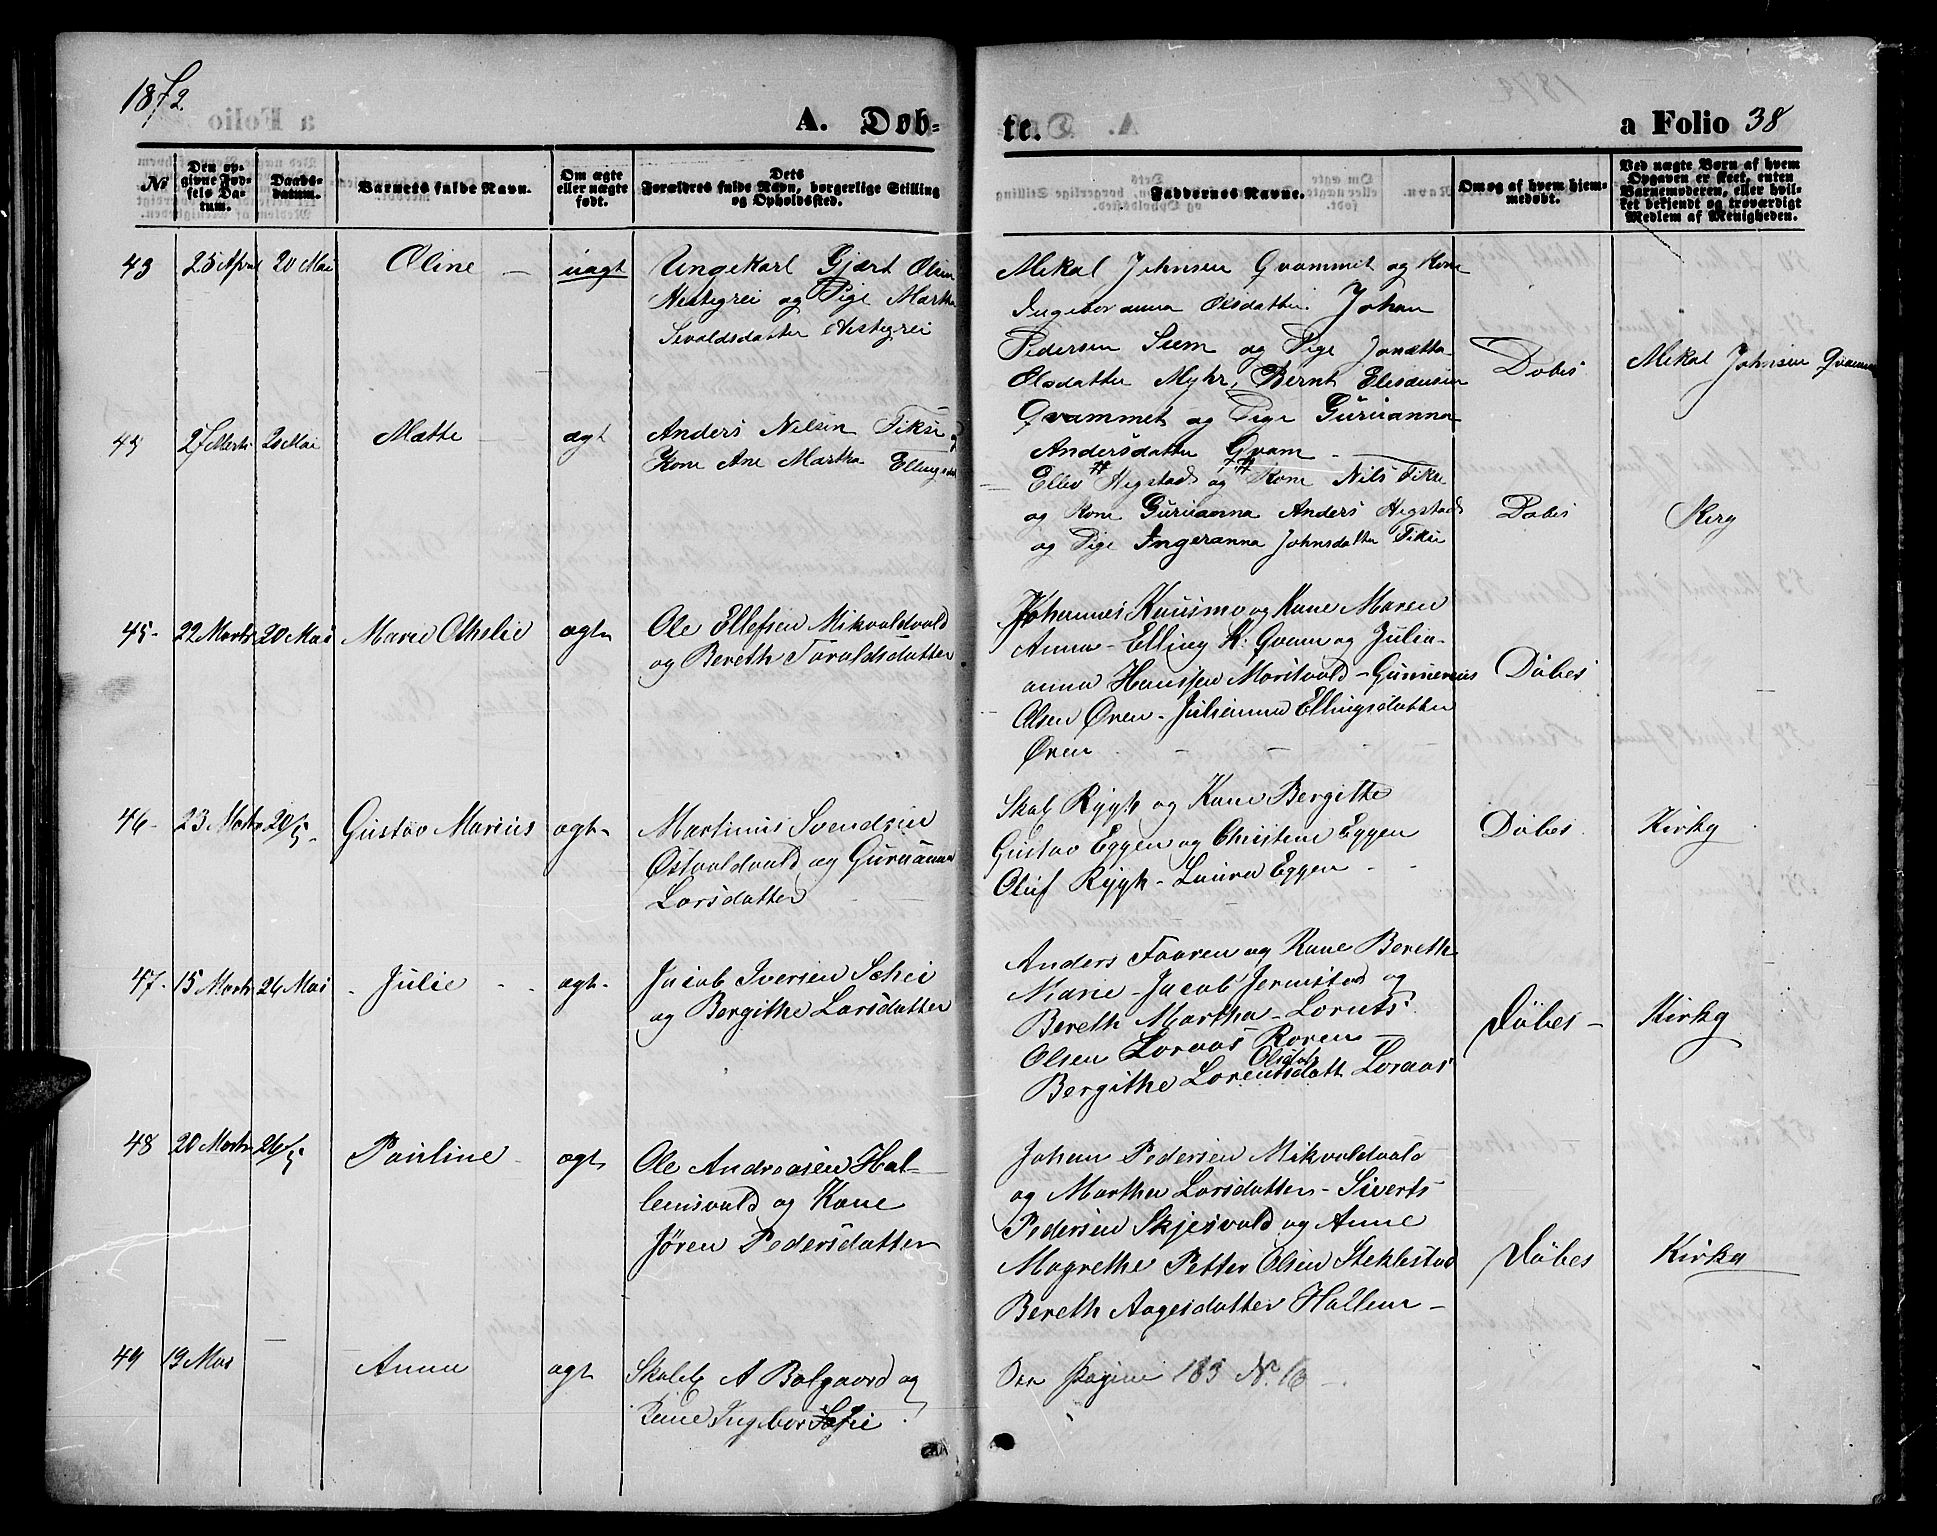 1872.
A. Døb-
te.
a Folio 38
№
Den op-
givne Fød-
sels Da-
tum.
Daabs-
datum.
Barnets fulde Navn.
Om ægte
eller uægte
født.
Dets
Forældres fulde Navn, borgerlige Stilling
og Opholdssted.
Faddernes Navne.
Om og af hvem hjem-
medøbt.
Ved uægte Børn af hvem
Opgaven er skeet, enten
Barnemoderen, eller hvil-
ket bekjendt og troværdigt
Medlem af Menigheden.
43 25 April 20 Mai Oline uægt Ungekarl Gjært Olsen
Hestegrei og Pige Martha
Sevaldsdatter Hestegrei
Mikal Johnsen Qvammet og Kone
Ingeboranna Olsdatter. Johan
Pedersen Suem og Pige Jonetta
Olsdatter Myhr, Bernt Eliseusen
Qvammet og Pige Guruanna
Andersdatter Qvam -
Døbes Mikal Johnsen Qvammet
45 27 Marts 20 Mai Mætte ægt Anders Nilsen Fikse og
Kone Ane Martha Ellingsdat
Ellev Hegstad og Kone Nils Fikse
og Kone Guruanna Anders Hegstad
og Pige Ingeranna Johnsdatter Fikse
Døbes Kirg
45- 22 Marts 20 Mai Marie Othelie ægte Ole Ellefsen Mikvoldvald
og Bereth Toraldsdatter
Johannes Kausmo og Kone Maren
Anna - Elling K. Qvam og Julia-
anna Hanssen Moritvald - Gunnerius
Olsen Øren - Julianna Ellingsdatter
Øren
Døbes
46- 23 Marts 20/5- Gustav Marius ægt- Martinus Svendsen
Østvoldvald og Guruanna
Larsdatter
Skal. Rygh og Kone Bergithe
Gustav Eggen og Christine Eggen
Oluf Rygh - Laura Eggen -
Døbes Kirkg
47- 15 Marts 26 Mai Julie ægt- Jacob Iversen Schei
og Bergithe Larsdatter
Anders Faaren og Kone Bereth
Marie - Jacob Jermstad og
Bereth Martha - Loruts
Olsen Loraas Roren -
Olsdatr
Bergithe Lorentsdatt Loraas
Døbes - Kirkg
48 20 Marts 26/5 Pauline ægte Ole Andreasen Hal-
lemsvald og Kone
Jøren Pedersdatter
Johan Pedersen Mikvoldvald
og Martha Larsdatter - Siverts
Pedersen Skjesvold og Anne
Magrethe Petter Olsen Steklestad
Bereth Aagesdatter Hallem -
Døbes Kirka
49 19 Mai Anna ægt A Balgaard og
Kone Ingebor Sofie
See Pagina 183 Nr. 16 -